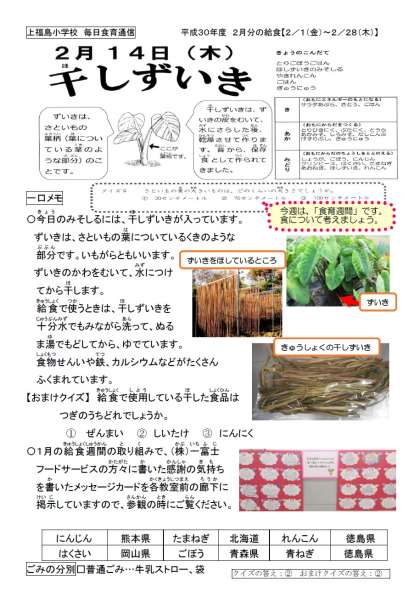 上福島小学校 毎日食育通信
平成30年度 2月分の給食【2／1（金）～2／28（木）】
2月14日（木）
干しずいき
きょうのこんだて
とりごぼうごはん
ほしずいきのみそしる
やきれんこん
ごはん
ぎゅうにゅう
ずいきは、
さといもの
葉柄（葉につい
ている茎のよ
うな部分）のこ
とです。
ここが
葉柄です。
干しずいきは、ず
いきの皮をむいて、
水にさらした後、
乾燥させて作りま
す。昔から、保存
食として作られて
きました。
き
あか
みどり
一口メモ
今週は、「食育週間」です。
食について考えましょう。
○今日のみそしるには、干しずいきが入っています。
ずいきは、さといもの葉についているくきのような
部分です。いもがらともいいます。
ずいきのかわをむいて、水につけ
てから干します。
給食で使うときは、干しずいきを
十分水でもみながら洗って、ぬる
ま湯でもどしてから、ゆでています。
食物せんいや鉄、カルシウムなどがたくさん
ふくまれています。
ずいきをほしているところ
ずいき
きゅうしょくの干しずいき
【おまけクイズ】 給食で使用している干した食品は
つぎのうちどれでしょうか。
① ぜんまい ② しいたけ ③ にんにく
○1月の給食週間の取り組みで、（株）一富士
フードサービスの方々に書いた感謝の気持ち
を書いたメッセージカードを各教室前の廊下に
掲示していますので、参観の時にご覧ください。
にんじん 熊本県 たまねぎ 北海道 れんこん 徳島県
はくさい 岡山県 ごぼう 青森県 青ねぎ 徳島県
ごみの分別 □普通ごみ…牛乳ストロー、袋
クイズの答え：② おまけクイズの答え：②